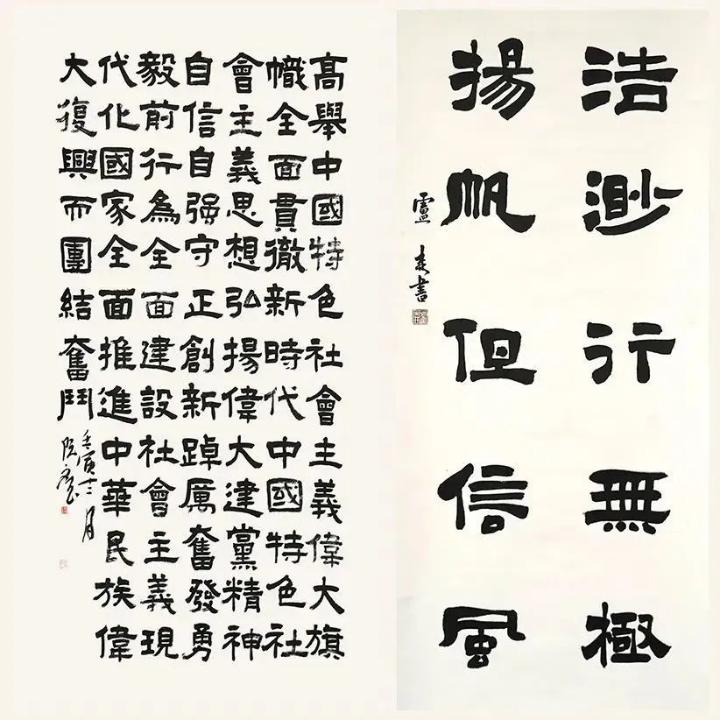 高舉中國特色社會主義偉大旗
幟全面貫徹新時代中國特色社
會主義思想弘揚偉大建黨精神
自信自强守正創新踔厲奮發勇
毅前行為全面建設社會主義現
代化國家全面推進中華民族偉
大復興而團結奮鬥
壬寅十二月
浩渺行無極
揚帆但信風
盧書